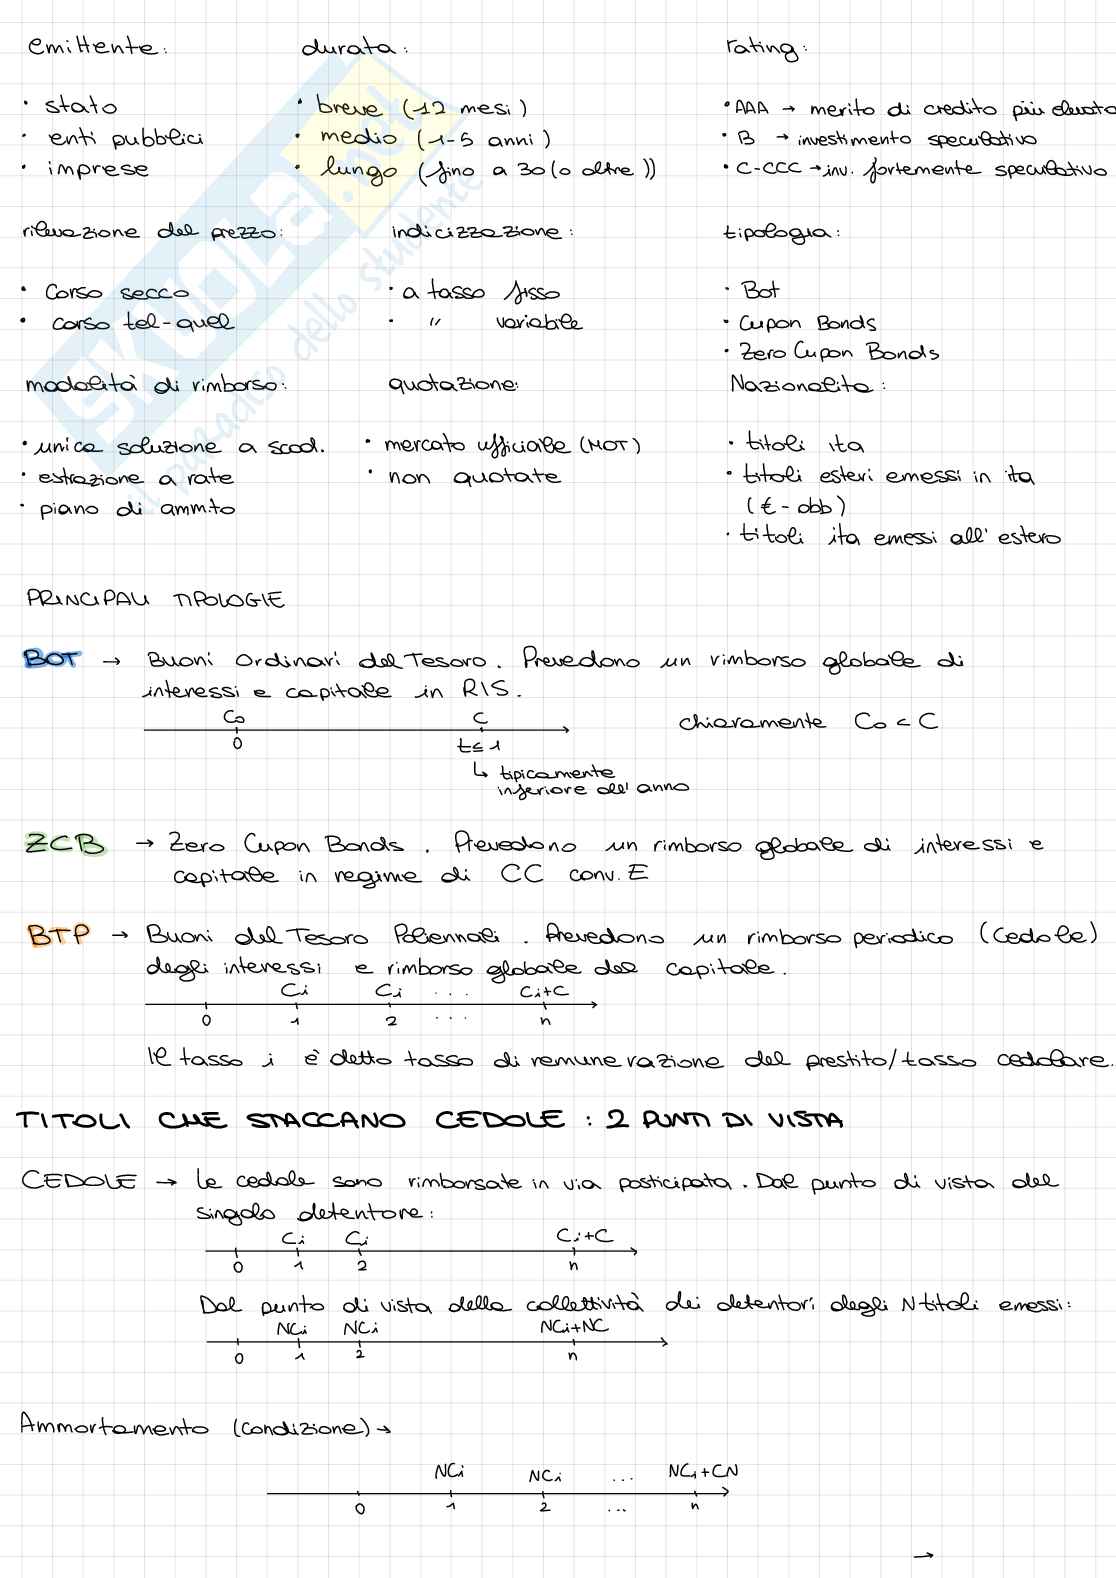 emittente:
durata:
rating:
• stato
• enti pubblici
• imprese
• breve (12 mesi)
• medio (1-5 anni)
• lungo (fino a 30 (o oltre))
• AAA → merito di credito più elevato
• B → investimento speculativo
• C-CCC → inv. fortemente speculativo
rilevazione del prezzo:
indicizzazione:
tipologia:
• Corso secco
• corso tel-quel
• a tasso fisso
• " variabile
• Bot
• Cupon Bonds
• Zero Cupon Bonds
modalità di rimborso:
quotazione:
Nazionalita:
• unica soluzione a scad.
• estrazione a rate
• piano di amm.to
• mercato ufficiale (MOT)
• non quotate
• titoli ita
• titoli esteri emessi in ita
(€-obb)
• titoli ita emessi all'estero
PRINCIPALI TIPOLOGIE
BOT → Buoni Ordinari del Tesoro. Prevedono un rimborso globale di
interessi e capitale in RIS.
C₀ C
0 t≤1
chiaramente C₀ < C
↳ tipicamente
inferiore all'anno
ZCB → Zero Cupon Bonds. Prevedono un rimborso globale di interessi e
capitale in regime di CC conv. E
BTP → Buoni del Tesoro Poliennali. Prevedono un rimborso periodico (Cedole)
degli interessi e rimborso globale del capitale.
Ci Ci ... Ci+C
0 1 2 ... n
Il tasso i è detto tasso di remunerazione del prestito/tasso cedolare.
TITOLI CHE STACCANO CEDOLE: 2 PUNTI DI VISTA
CEDOLE → le cedole sono rimborsate in via posticipata. Dal punto di vista del
singolo detentore:
Ci Ci Ci+C
0 1 2 n
Dal punto di vista della collettività dei detentori degli N titoli emessi:
NCi NCi NCi+NC
0 1 2 n
Ammortamento (condizione) →
NCi NCi ... NCi+CN
0 1 2 ... n
→
SKUOLA.net
il paradiso dello studente